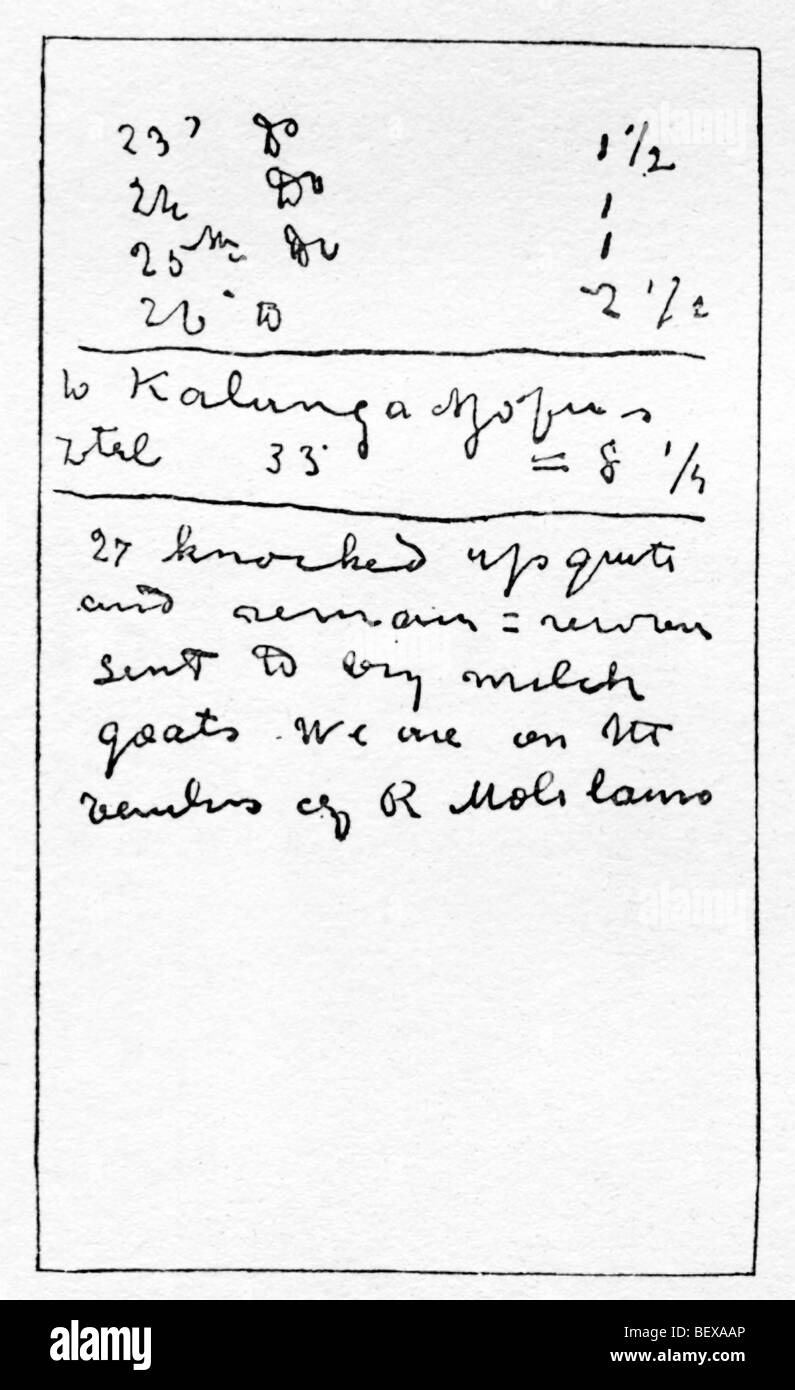 23 Do 1 1/2
24 Do 1
25 Do 1
26 To 2 1/2
to Kalunganjofu's
total 33 = 8 1/4
27 knocked up quite
and remain = recover
sent to buy milch
goats. We are on the
banks of R Molilamo
alamy
Image ID: BEXAAP
www.alamy.com